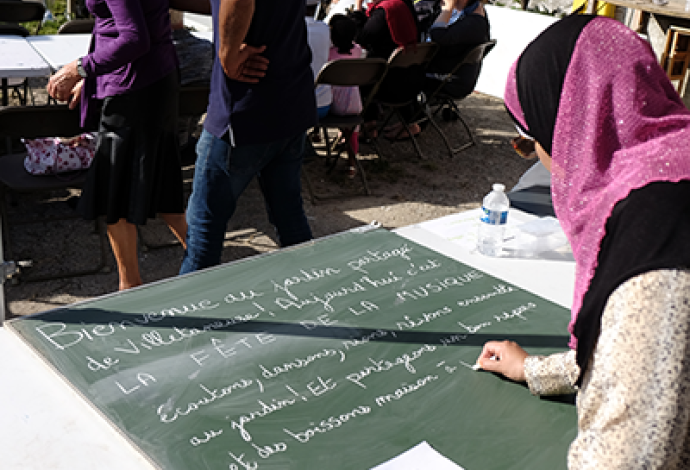 Bienvenue au jardin partagé
de Villetaneuse! Aujourd'hui c'est
LA FÊTE DE LA MUSIQUE
Écoutons, dansons, rions, ensemble
au jardin! Et partageons un bon repas
et des boissons maison à